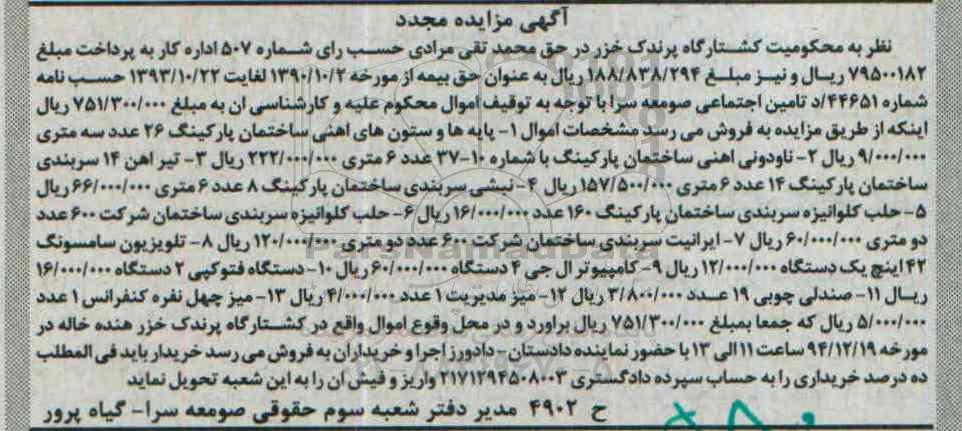 آگهی مزایده مجدد
نظر به محکومیت کشتارگاه پرندک خزر در حق محمد تقی مرادی حسب رای شماره ۵۰۷ اداره کار به پرداخت مبلغ
۷۹۵۰۰۱۸۲ ریال و نیز مبلغ ۱۸۸/۸۳۸/۲۹۴ ریال به عنوان حق بیمه از مورخه ۱۳۹۰/۱۰/۲ لغایت ۱۳۹۳/۱۰/۲۲ حسب نامه
شماره ۴۴۶۵۱/د تامین اجتماعی صومعه سرا با توجه به توقیف اموال محکوم علیه و کارشناسی ان به مبلغ ۷۵۱/۳۰۰/۰۰۰ ریال
اینکه از طریق مزایده به فروش می رسد مشخصات اموال ۱- پایه ها و ستون های اهنی ساختمان پارکینگ ۲۶ عدد سه متری
۹/۰۰۰/۰۰۰ ریال ۲- ناودونی اهنی ساختمان پارکینگ با شماره ۱۰-۳۷ عدد ۶ متری ۲۲۲/۰۰۰/۰۰۰ ریال ۳- تیر اهن ۱۴ سربندی
ساختمان پارکینگ ۱۴ عدد ۶ متری ۱۵۷/۵۰۰/۰۰۰ ریال ۴- نبشی سربندی ساختمان پارکینگ ۸ عدد ۶ متری ۶۶/۰۰۰/۰۰۰ ریال
۵- حلب کلوانیزه سربندی ساختمان پارکینگ ۱۶۰ عدد ۱۶/۰۰۰/۰۰۰ ریال ۶- حلب کلوانیزه سربندی ساختمان شرکت ۶۰۰ عدد
دو متری ۶۰/۰۰۰/۰۰۰ ریال ۷- ایرانیت سربندی ساختمان شرکت ۶۰۰ عدد دو متری ۱۲۰/۰۰۰/۰۰۰ ریال ۸- تلویزیون سامسونگ
۴۲ اینچ یک دستگاه ۱۲/۰۰۰/۰۰۰ ریال ۹- کامپیوتر ال جی ۴ دستگاه ۶۰/۰۰۰/۰۰۰ ریال ۱۰- دستگاه فتوکپی ۲ دستگاه ۱۶/۰۰۰/۰۰۰
ریال ۱۱- صندلی چوبی ۱۹ عدد ۳/۸۰۰/۰۰۰ ریال ۱۲- میز مدیریت ۱ عدد ۴/۰۰۰/۰۰۰ ریال ۱۳- میز چهل نفره کنفرانس ۱ عدد
۵/۰۰۰/۰۰۰ ریال که جمعا بمبلغ ۷۵۱/۳۰۰/۰۰۰ ریال براورد و در محل وقوع اموال واقع در کشتارگاه پرندک خزر هنده خاله در
مورخه ۹۴/۱۲/۱۹ ساعت ۱۱ الی ۱۳ با حضور نماینده دادستان - دادورز اجرا و خریداران به فروش می رسد خریدار باید فی المطلب
ده درصد خریداری را به حساب سپرده دادگستری ۲۱۷۱۲۹۴۵۰۸۰۰۳ واریز و فیش ان را به این شعبه تحویل نماید
ح ۴۹۰۲ مدیر دفتر شعبه سوم حقوقی صومعه سرا- گیاه پرور